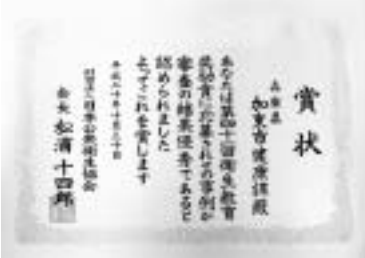 賞状
兵庫県
加東市健康課殿
あなたは第四十一回衛生教育
奨励賞に応募されその事例が
審査の結果優秀であると
認められました
よってこれを賞します
平成二十年十月三十日
財団法人日本公衆衛生協会
会長 松浦十四郎